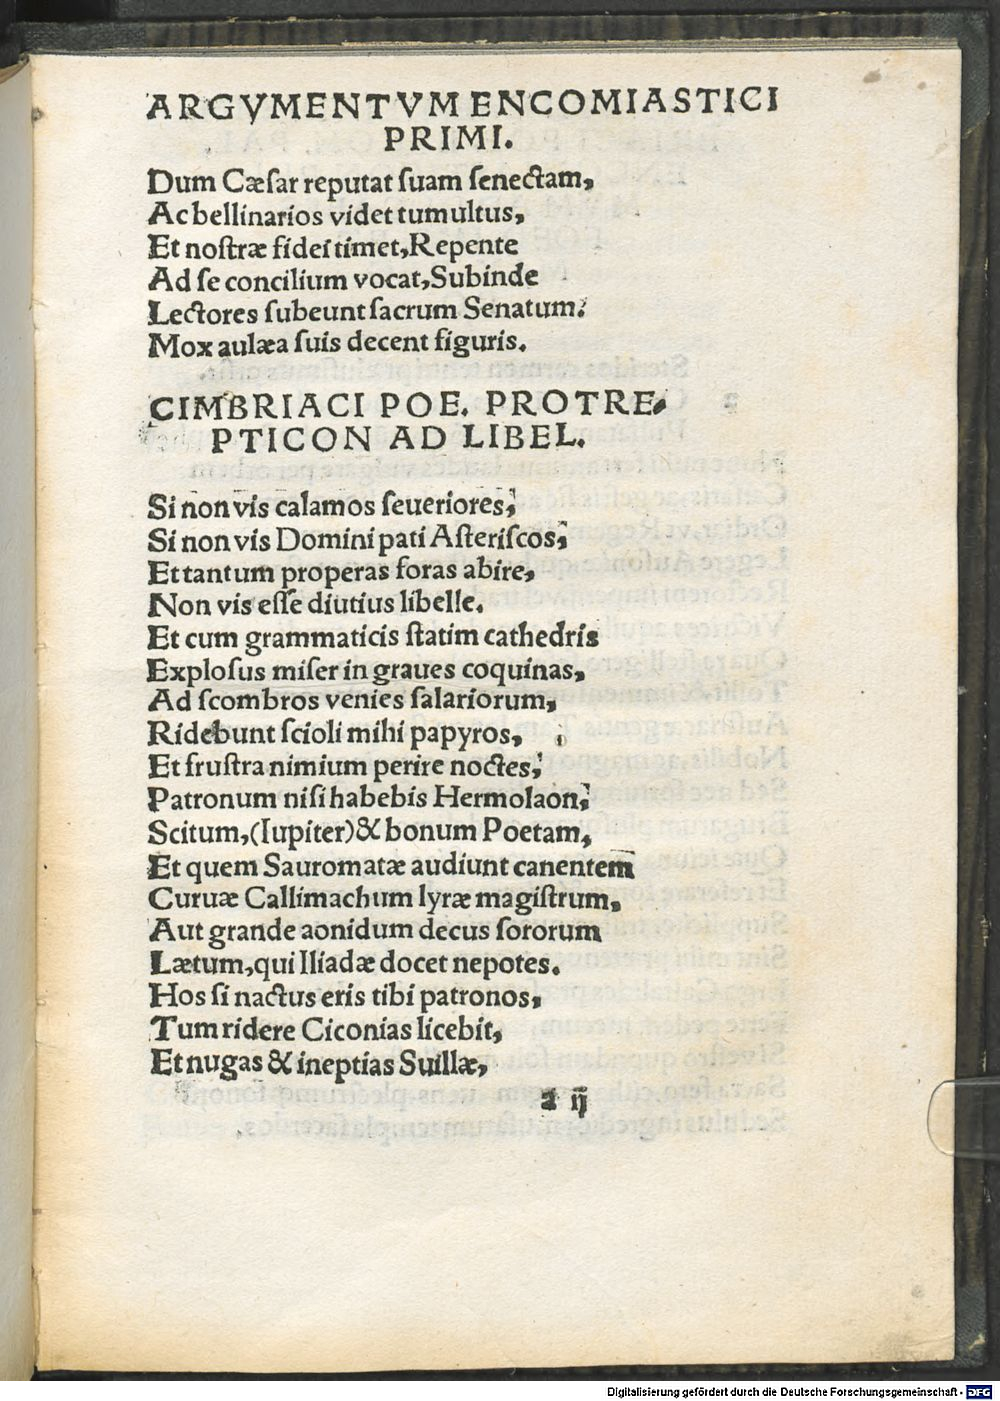 ARGVMENTVM ENCOMIASTICI
PRIMI.
Dum Cæsar reputat suam senectam,
Ac bellinarios videt tumultus,
Et nostræ fidei timet, Repente
Ad se concilium vocat, Subinde
Lectores subeunt sacrum Senatum:
Mox aulæa suis decent figuris.
CIMBRIACI POE. PROTRE-
PTICON AD LIBEL.
Si non vis calamos seueriores,
Si non vis Domini pati Asteriscos,
Et tantum properas foras abire,
Non vis esse diutius libelle.
Et cum grammaticis statim cathedris
Explosus miser in graues coquinas,
Ad scombros venies salariorum,
Ridebunt scioli mihi papyros,
Et frustra nimium perire noctes,
Patronum nisi habebis Hermolaon,
Scitum, (Iupiter) & bonum Poetam,
Et quem Sauromatæ audiunt canentem
Curuæ Callimachum lyræ magistrum,
Aut grande aonidum decus sororum
Lætum, qui Iliadæ docet nepotes.
Hos si nactus eris tibi patronos,
Tum ridere Ciconias licebit,
Et nugas & ineptias Suillæ,
a ij
Digitalisierung gefördert durch die Deutsche Forschungsgemeinschaft - DFG